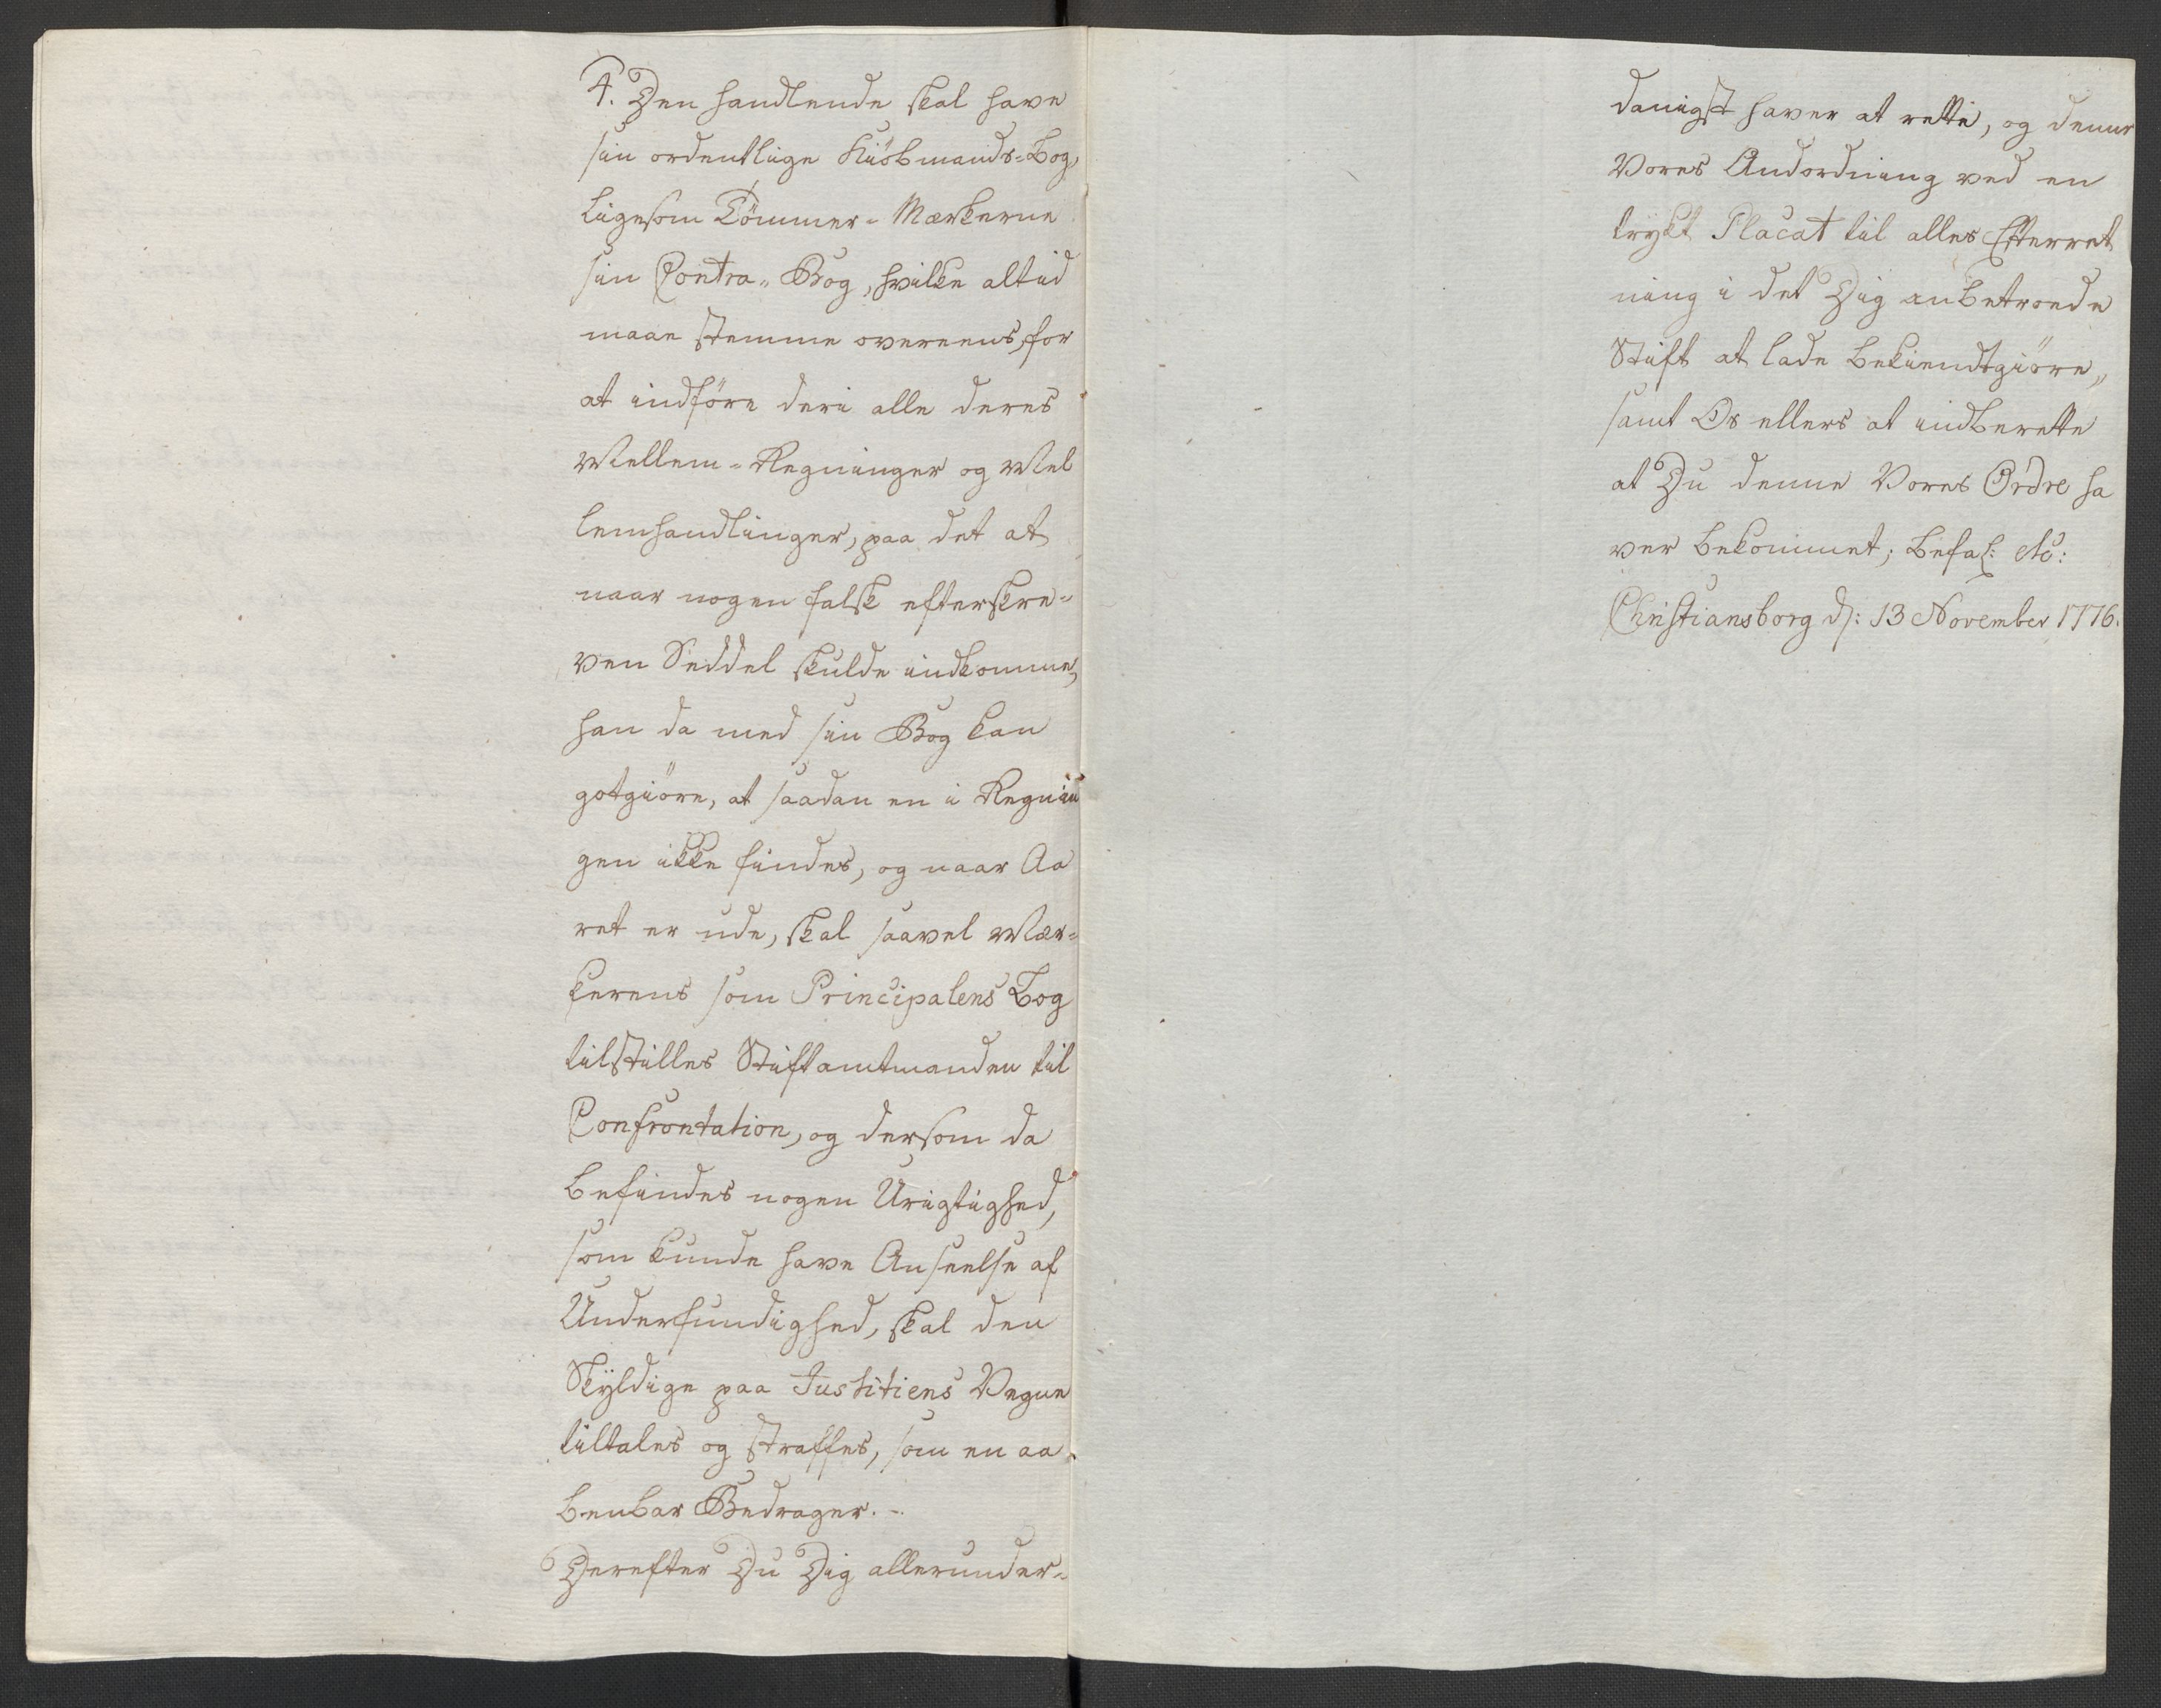 4. Den handlende skal have
sin ordentlige Kiöbmands-Bog,
ligesom Tömmer-Mærkerne
sin Contra-Bog, hvilke altiid
maae stemme overeens, for
at indföre deri alle deres
Mellem-Regninger og Mel
lemhandlinger, paa det at
naar nogen falsk efterskre-
ven Seddel skulde indkomme,
han da med sin Bog kan
gotgiöre, at saadan en i Regnin
gen ikke findes, og naar Aa
ret er ude, skal saavel Mær-
kerens som Principalens Bog
tilstilles Stiftamtmanden til
Confrontation, og dersom da
befindes nogen Urigtighed,
som kunde have Anseelse af
Underfundighed, skal den
Skyldige paa Justitiens Vegne
tiltales og straffes, som en aa
benbar Bedrager.
Derefter Du Dig allerunder-
danigst haver at rette, og denne
Vores Andordning ved en
trykt Placat til alles Efterret
ning i det Dig anbetroede
Stift at lade bekiendtgiöre,
samt Os ellers at indberette
at Du denne Vores Ordre ha
ver bekommet; Befal: etc:
Christiansborg d: 13 November 1776.